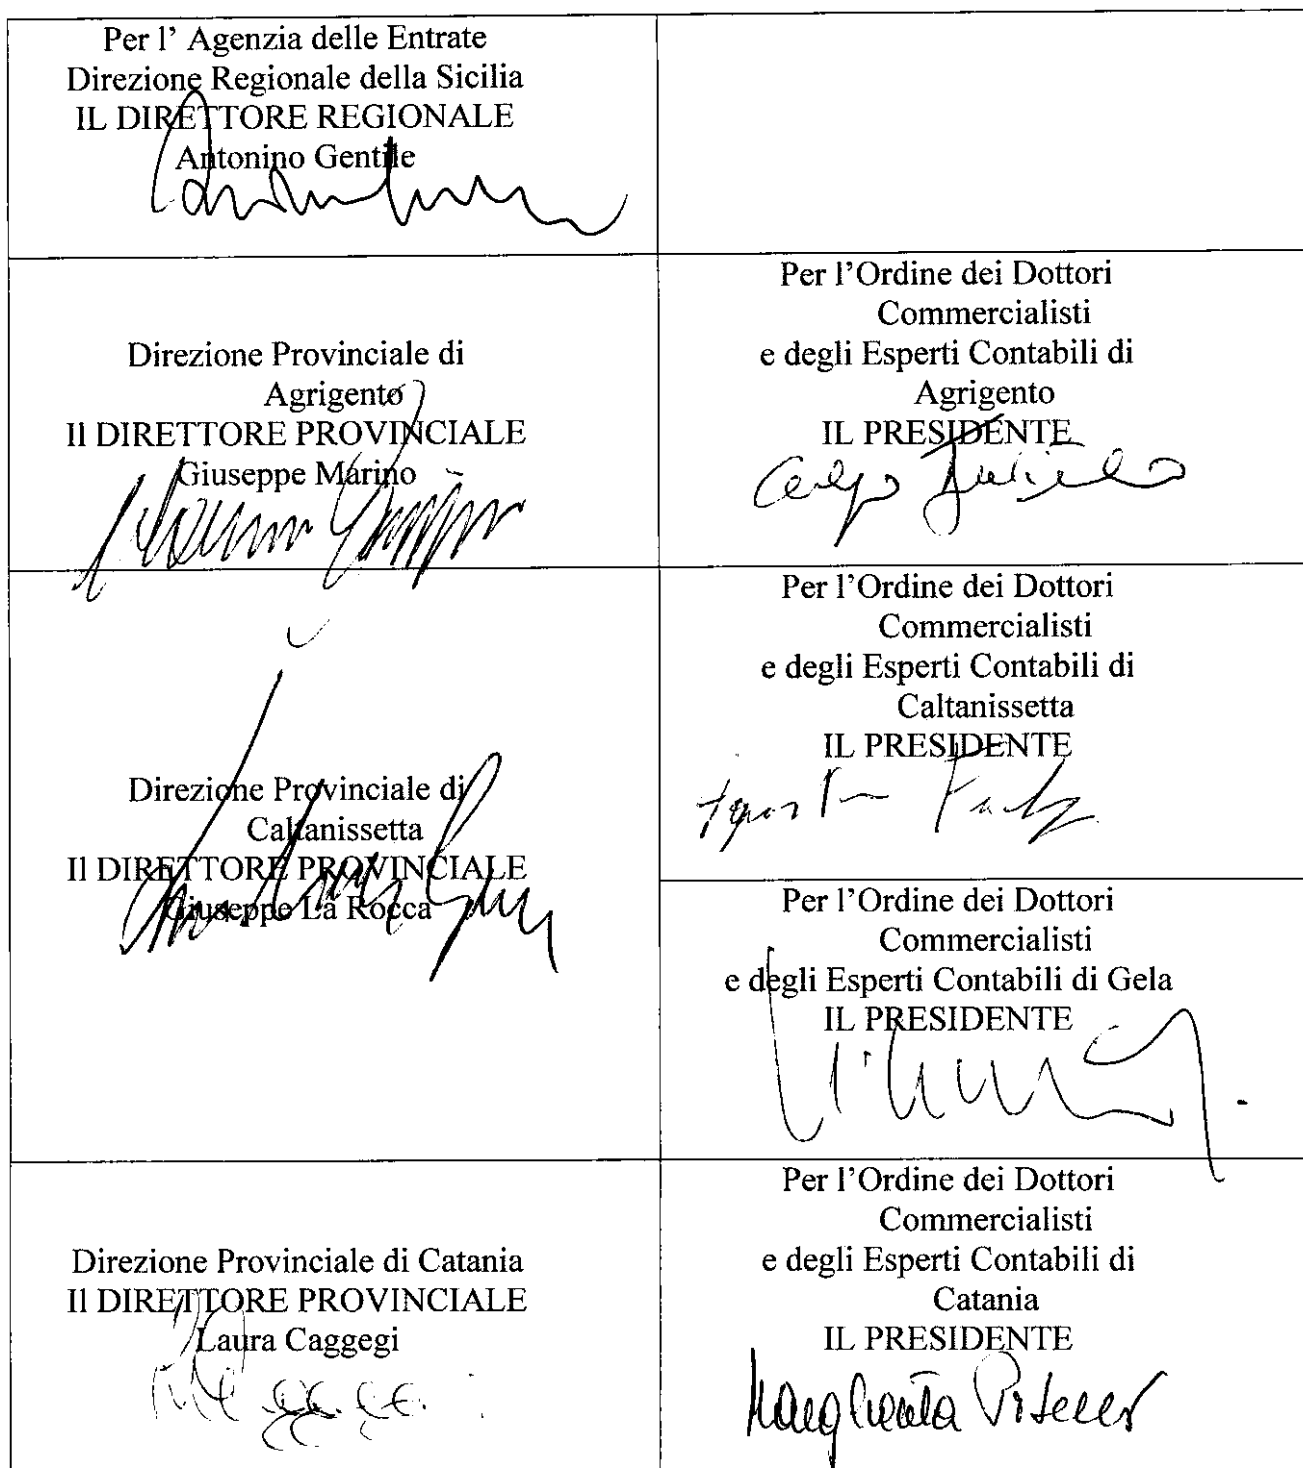 Per l’ Agenzia delle Entrate
Direzione Regionale della Sicilia
IL DIRETTORE REGIONALE
Antonino Gentile
Direzione Provinciale di
Agrigento
Il DIRETTORE PROVINCIALE
Giuseppe Marino
Per l’Ordine dei Dottori
Commercialisti
e degli Esperti Contabili di
Agrigento
IL PRESIDENTE
Direzione Provinciale di
Caltanissetta
Il DIRETTORE PROVINCIALE
Giuseppe La Rocca
Per l’Ordine dei Dottori
Commercialisti
e degli Esperti Contabili di
Caltanissetta
IL PRESIDENTE
Per l’Ordine dei Dottori
Commercialisti
e degli Esperti Contabili di Gela
IL PRESIDENTE
Direzione Provinciale di Catania
Il DIRETTORE PROVINCIALE
Laura Caggegi
Per l’Ordine dei Dottori
Commercialisti
e degli Esperti Contabili di
Catania
IL PRESIDENTE
Margherita